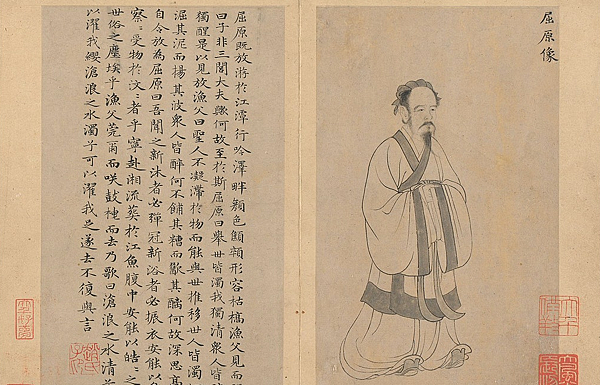 屈原像
屈原既放游於江潭行吟澤畔顏色顦顇形容枯槁漁父見而
曰子非三閭大夫歟何故至於斯屈原曰舉世皆濁我獨清衆
獨醒是以見放漁父曰聖人不凝滯於物而能與世推移世人皆濁
淈其泥而揚其波衆人皆醉何不餔其糟而歠其醨何故深思高
自令放為屈原曰吾聞之新沐者必彈冠新浴者必振衣安能以
察〻受物於汶〻者乎寧赴湘流葬於江魚腹中安能以皓〻之
世俗之塵埃乎漁父莞爾而咲鼓枻而去乃歌曰滄浪之水清
以濯我纓滄浪之水濁兮可以濯我足遂去不復與言
趙氏子昂